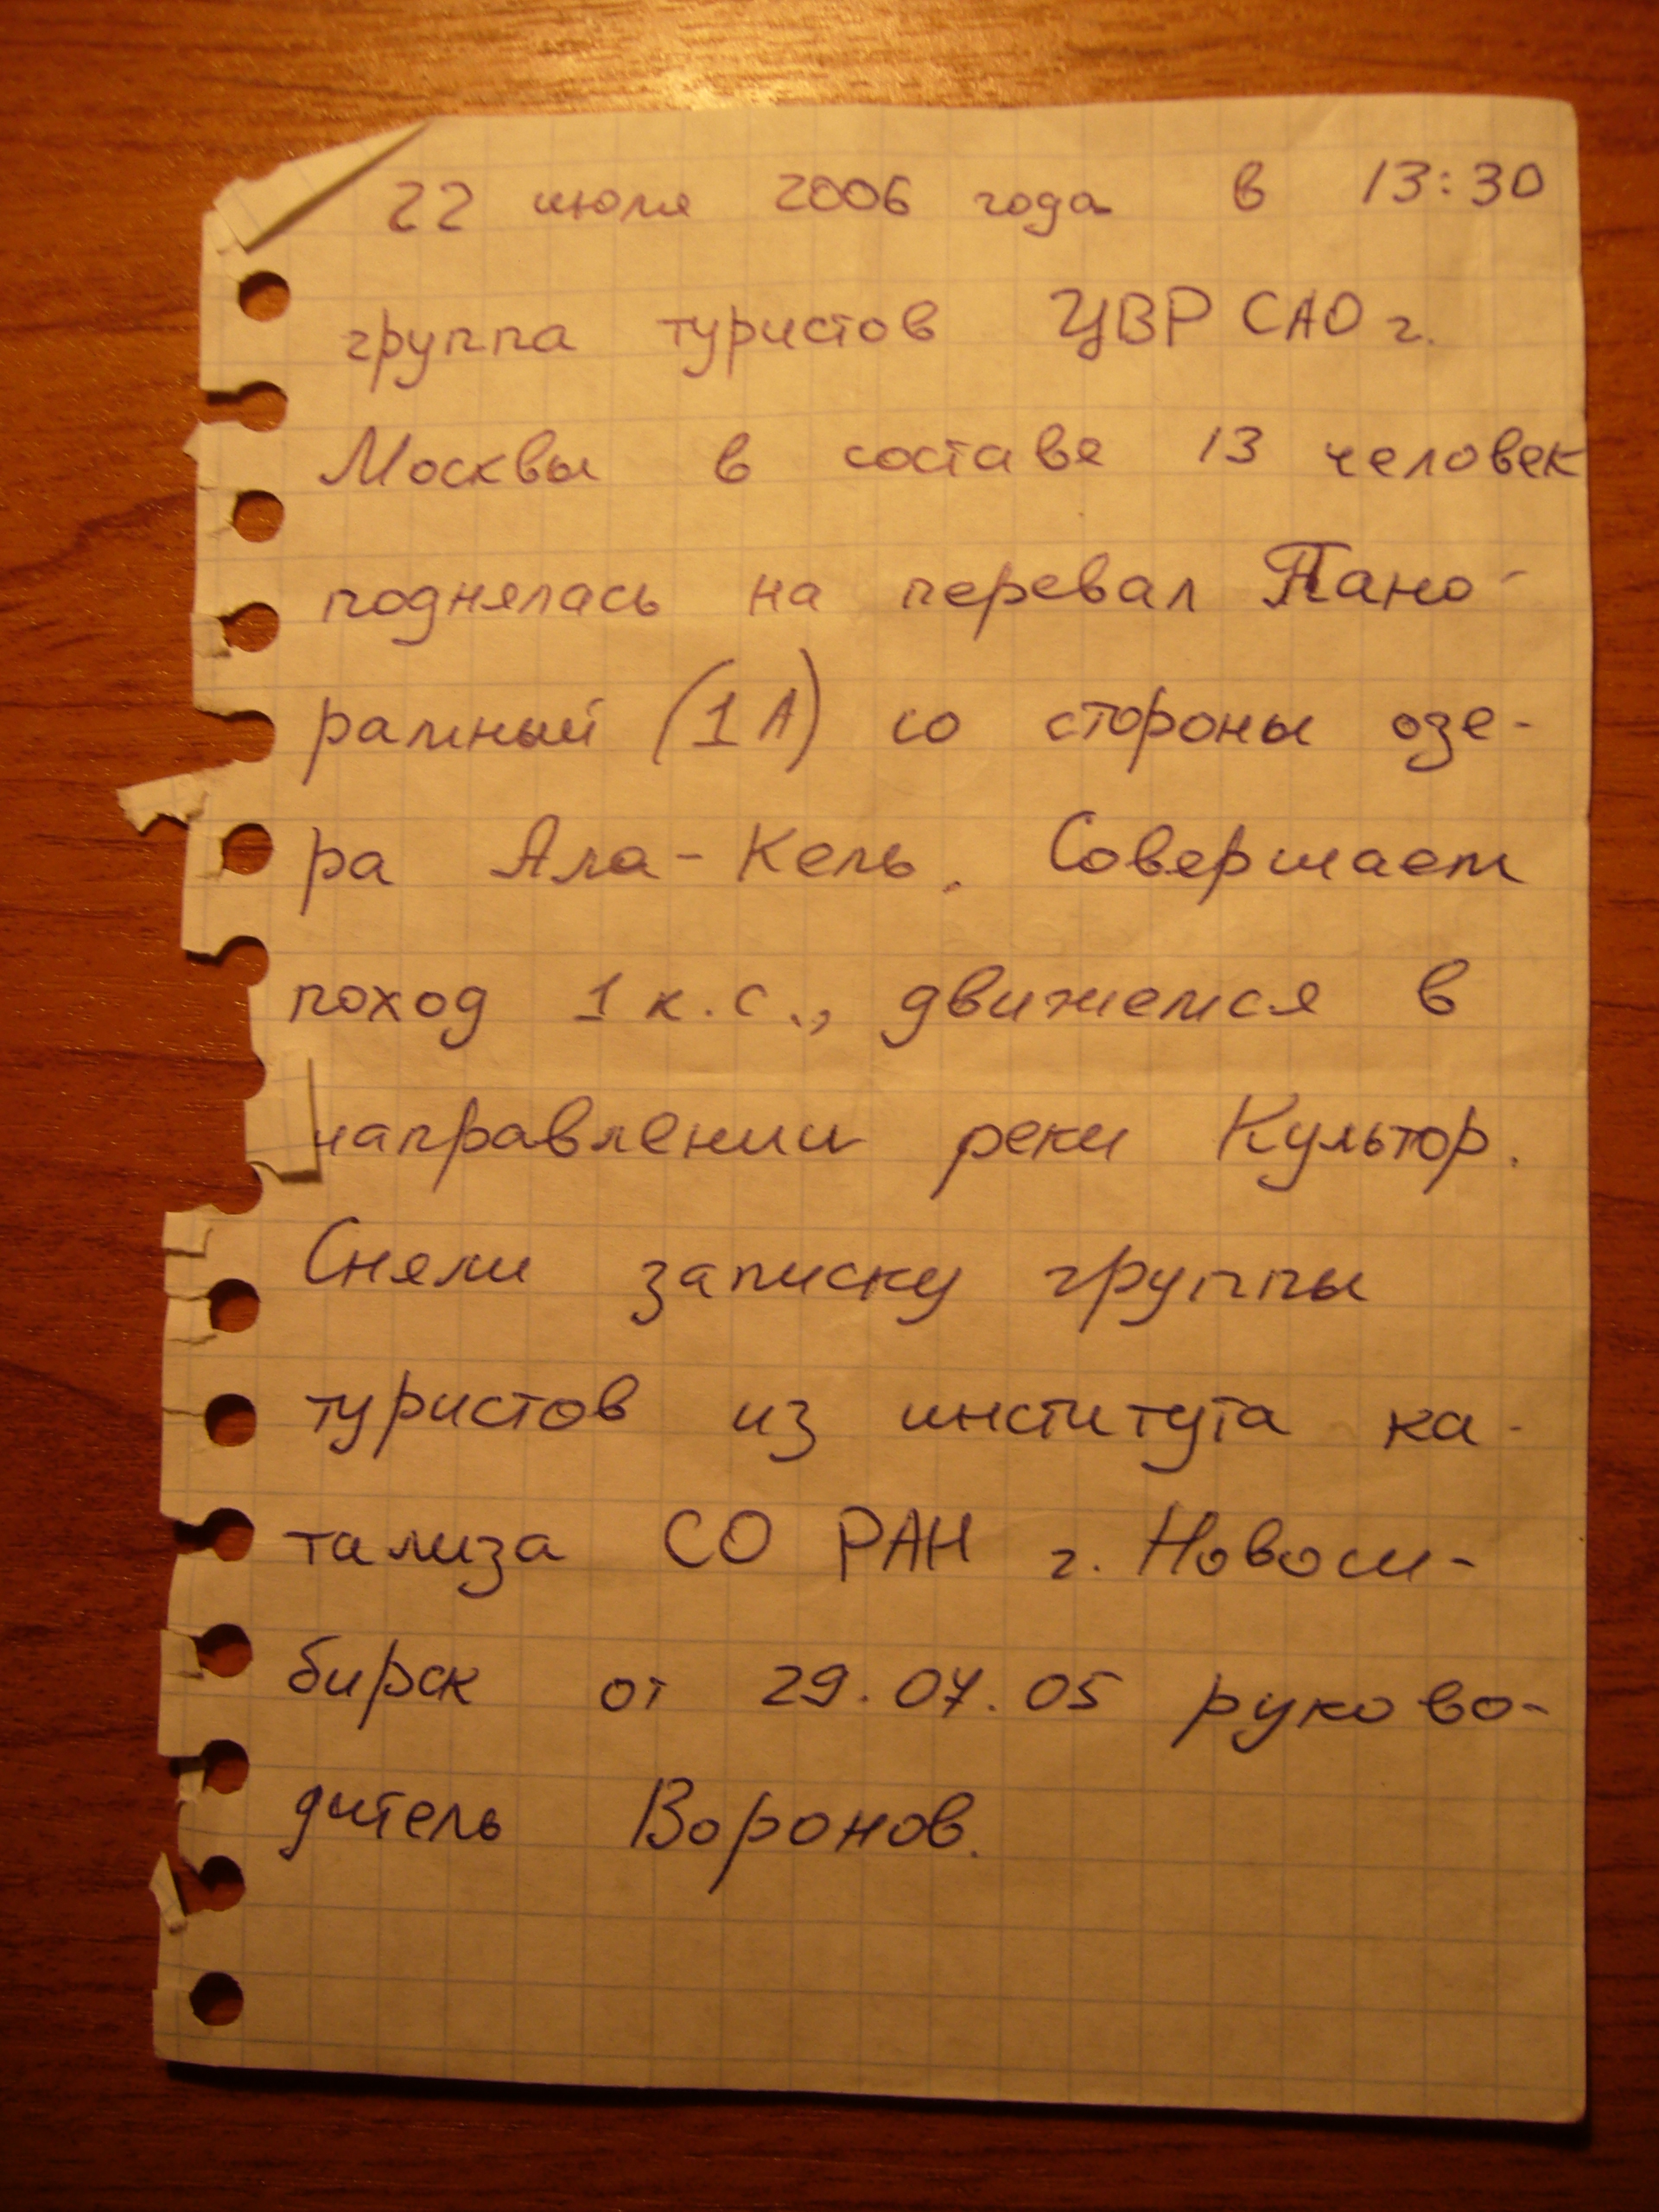 22 июля 2006 года в 13:30
группа туристов ЦВР САО г.
Москвы в составе 13 человек
поднялась на перевал Пано-
рамный (1А) со стороны озе-
ра Ала-Кель. Совершаем
поход 1 к.с., движемся в
направлении реки Культор.
Сняли записку группы
туристов из института ка-
тализа СО РАН г. Новоси-
бирск от 29.07.05 руково-
дитель Воронов.